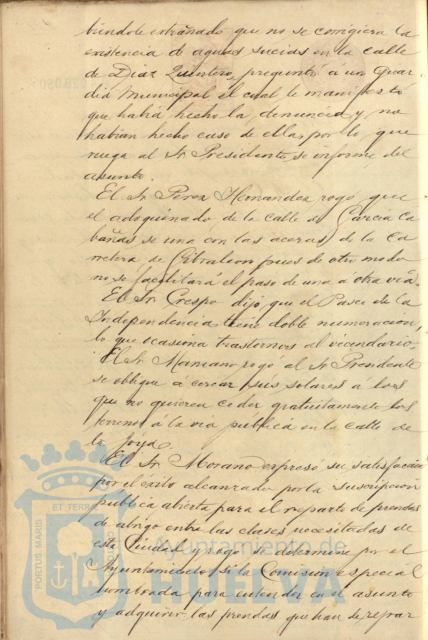 biéndole extrañado que no se corrigiera la
existencia de aguas sucias en la calle
de Diaz Quintero, preguntó a un Guar
dia Municipal el cual le manifestó
que habia hecho la denuncia y no
habian hecho caso de ella, por lo que
ruega al Sr. Presidente se informe del
asunto.
El Sr. Perez Hernandez rogó que
el adoquinado de la calle de Garcia Ca
bañas se una con las aceras de la Ca
rretera de Gibraleon pues de otro modo
no se facilitará el paso de una á otra via.
El Sr. Crespo dijo que el Paseo de la
Independencia tiene doble numeracion
lo que ocasiona trastornos al vecindario.
El Sr. Mamano rogó al Sr. Presidente
se obligue á cercar sus solares á los
que no quieren ceder gratuitamente los
terrenos á la via publica en la calle de
la Joya.
El Sr. Morano expresó su satisfacción
por el éxito alcanzado por la suscripción
publica abierta para el reparto de prendas
de abrigo entre las clases necesitadas de
esta Ciudad y rogó se determine por el
Ayuntamiento si la Comision especial
nombrada para entender en el asunto
y adquirir las prendas que han de repar
PORTUS MARIS ET TERRAE
Ayuntamiento de
HUELVA